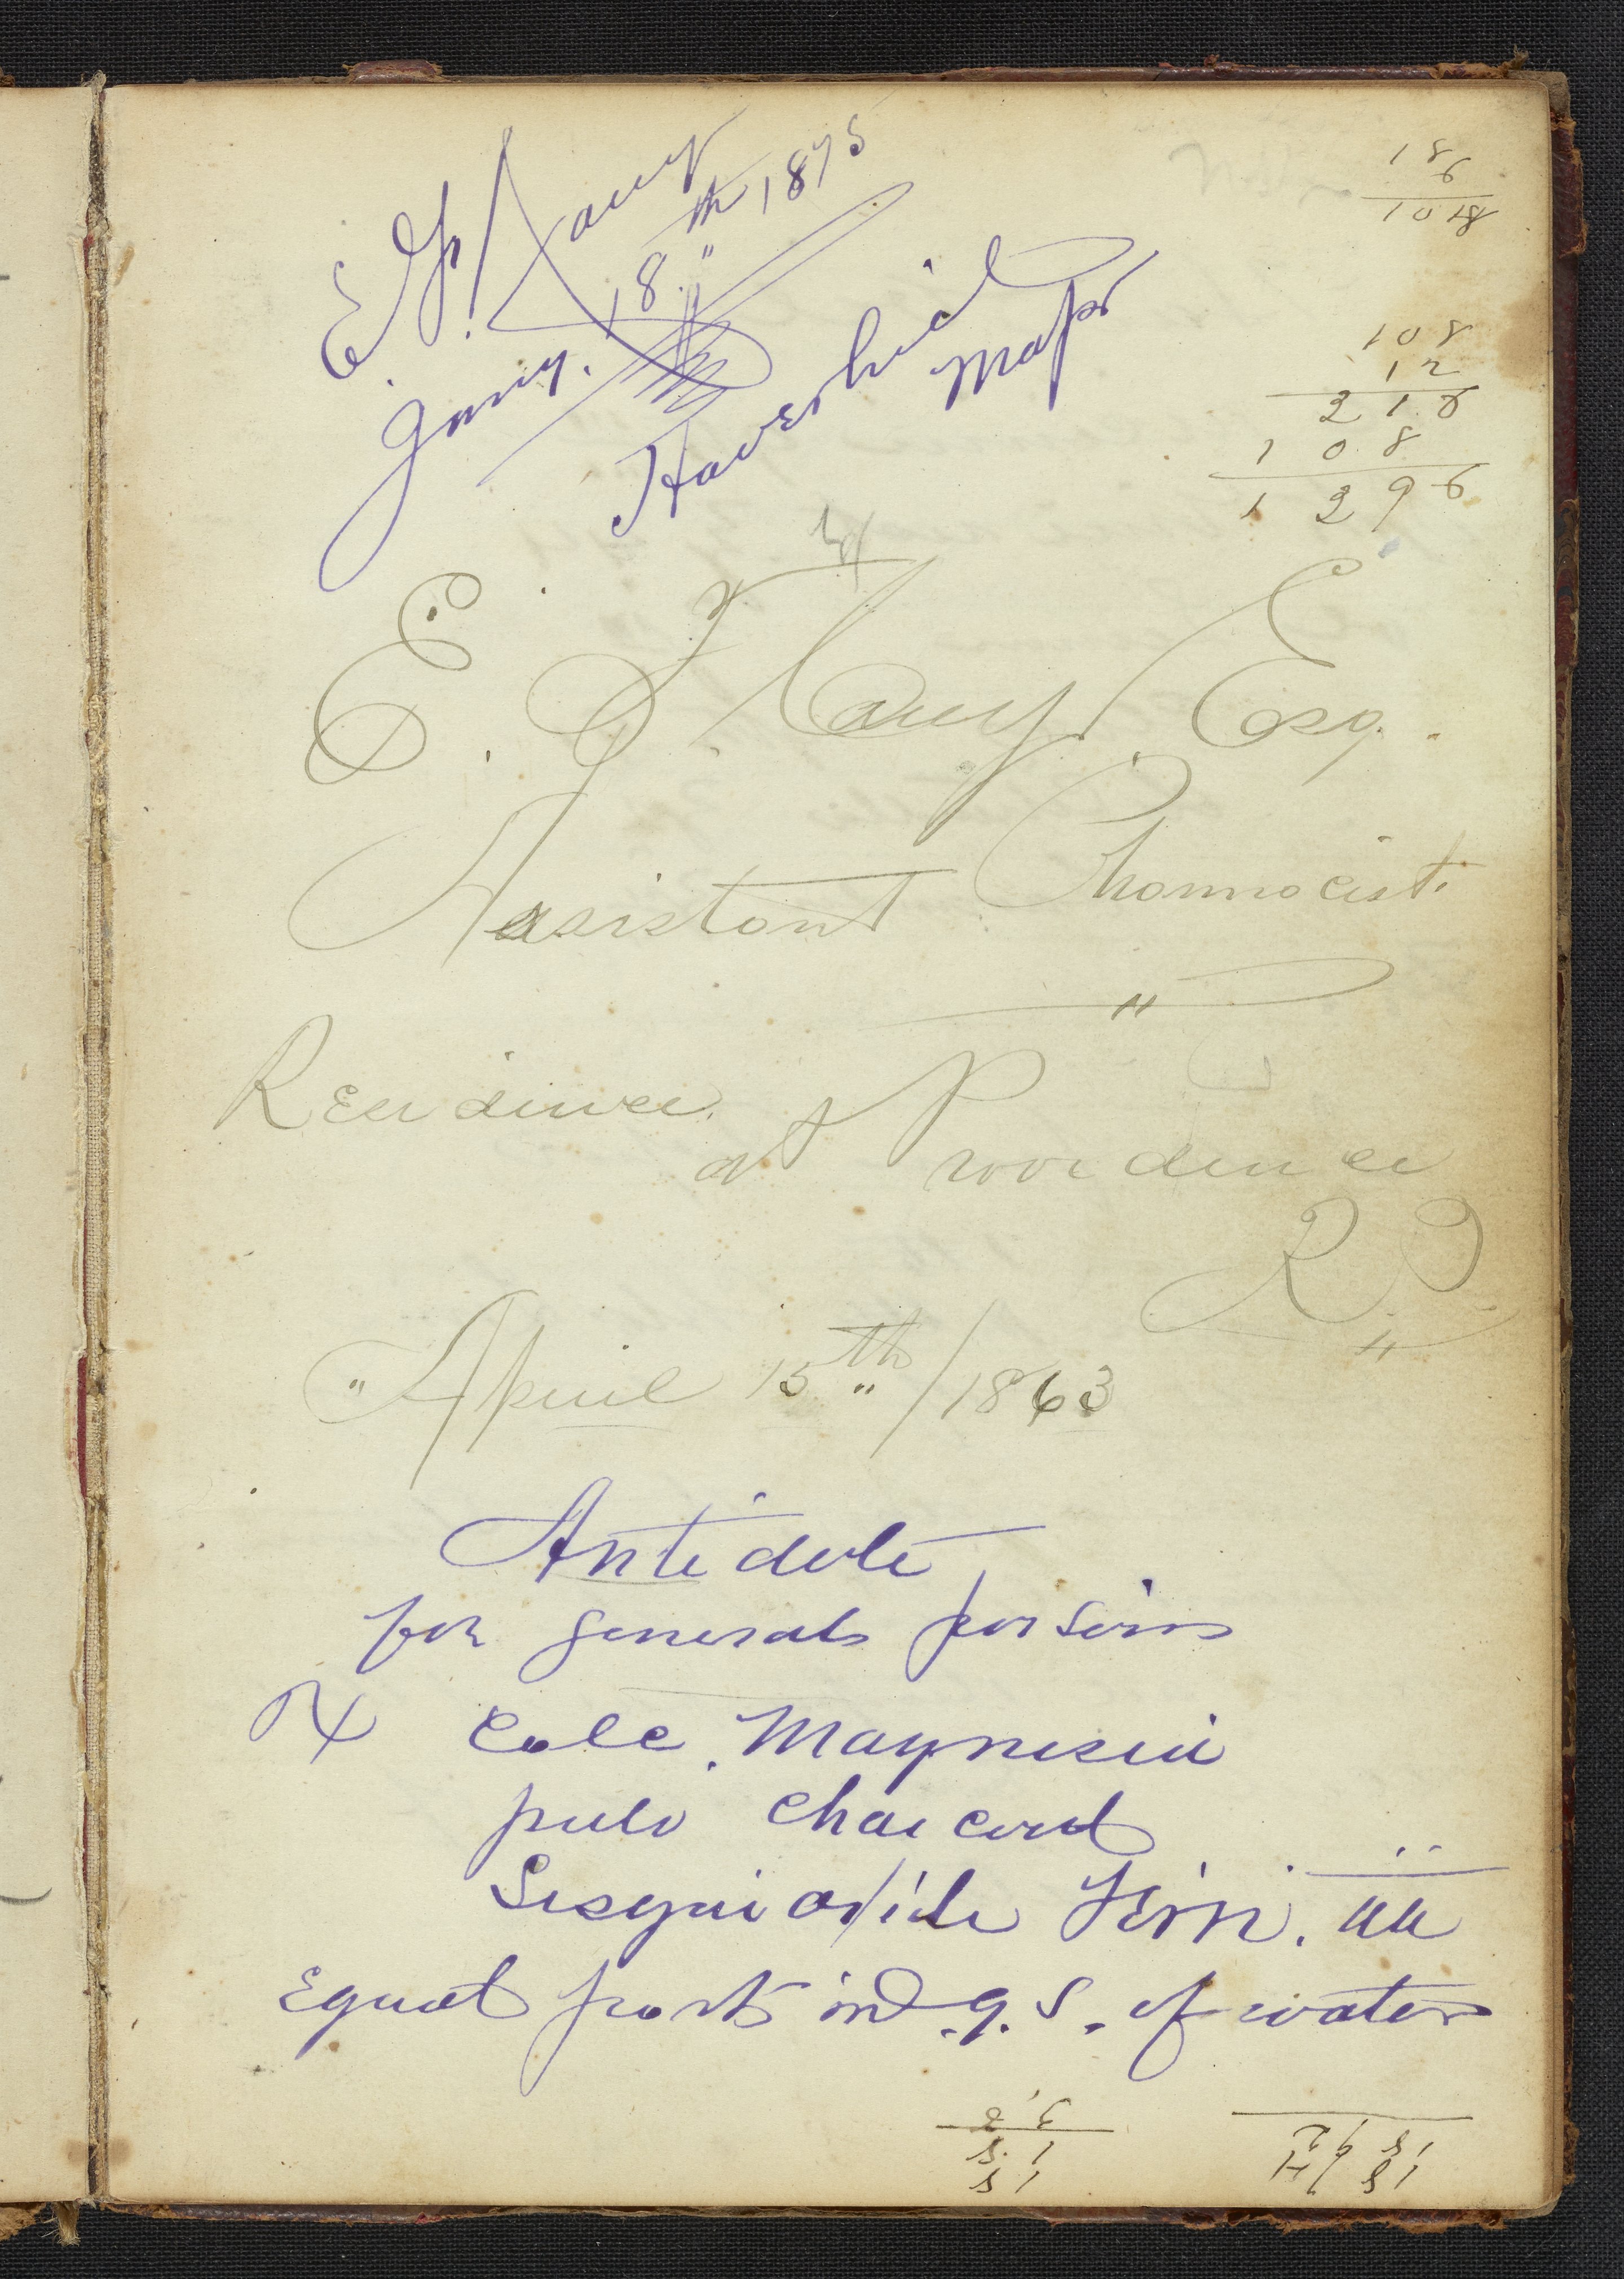 E. F. Lamy
Jany. 18th 1875
Haverhill
Mass
18
6
108
108
12
216
108
1296
E. F. Lamy Esq.
Assistant Pharmocist.
Residence.
at Providence
R I
"April 15th/1863
Antidote
for generals poisons
℞ Calc. Magnesia
pulv Charcoal
Sesquioxide Ferri. aa
Equal parts in q. s. of water